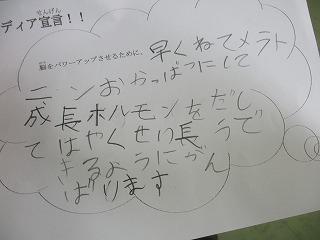 せんげん
ディア宣言！！
のう
脳をパワーアップさせるために、
早くねてメラト
ニンおかっぱつにして
成長ホルモンをだし
てはやくせい長うで
きるようにがん
ばります